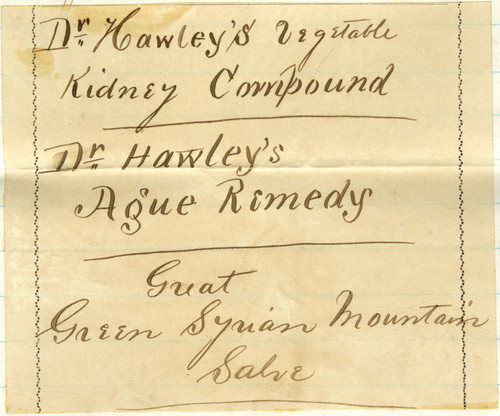 Dr. Hawley's Vegetable
Kidney Compound
Dr. Hawley's
Ague Remedy
Great
Green Syrian Mountain
Salve